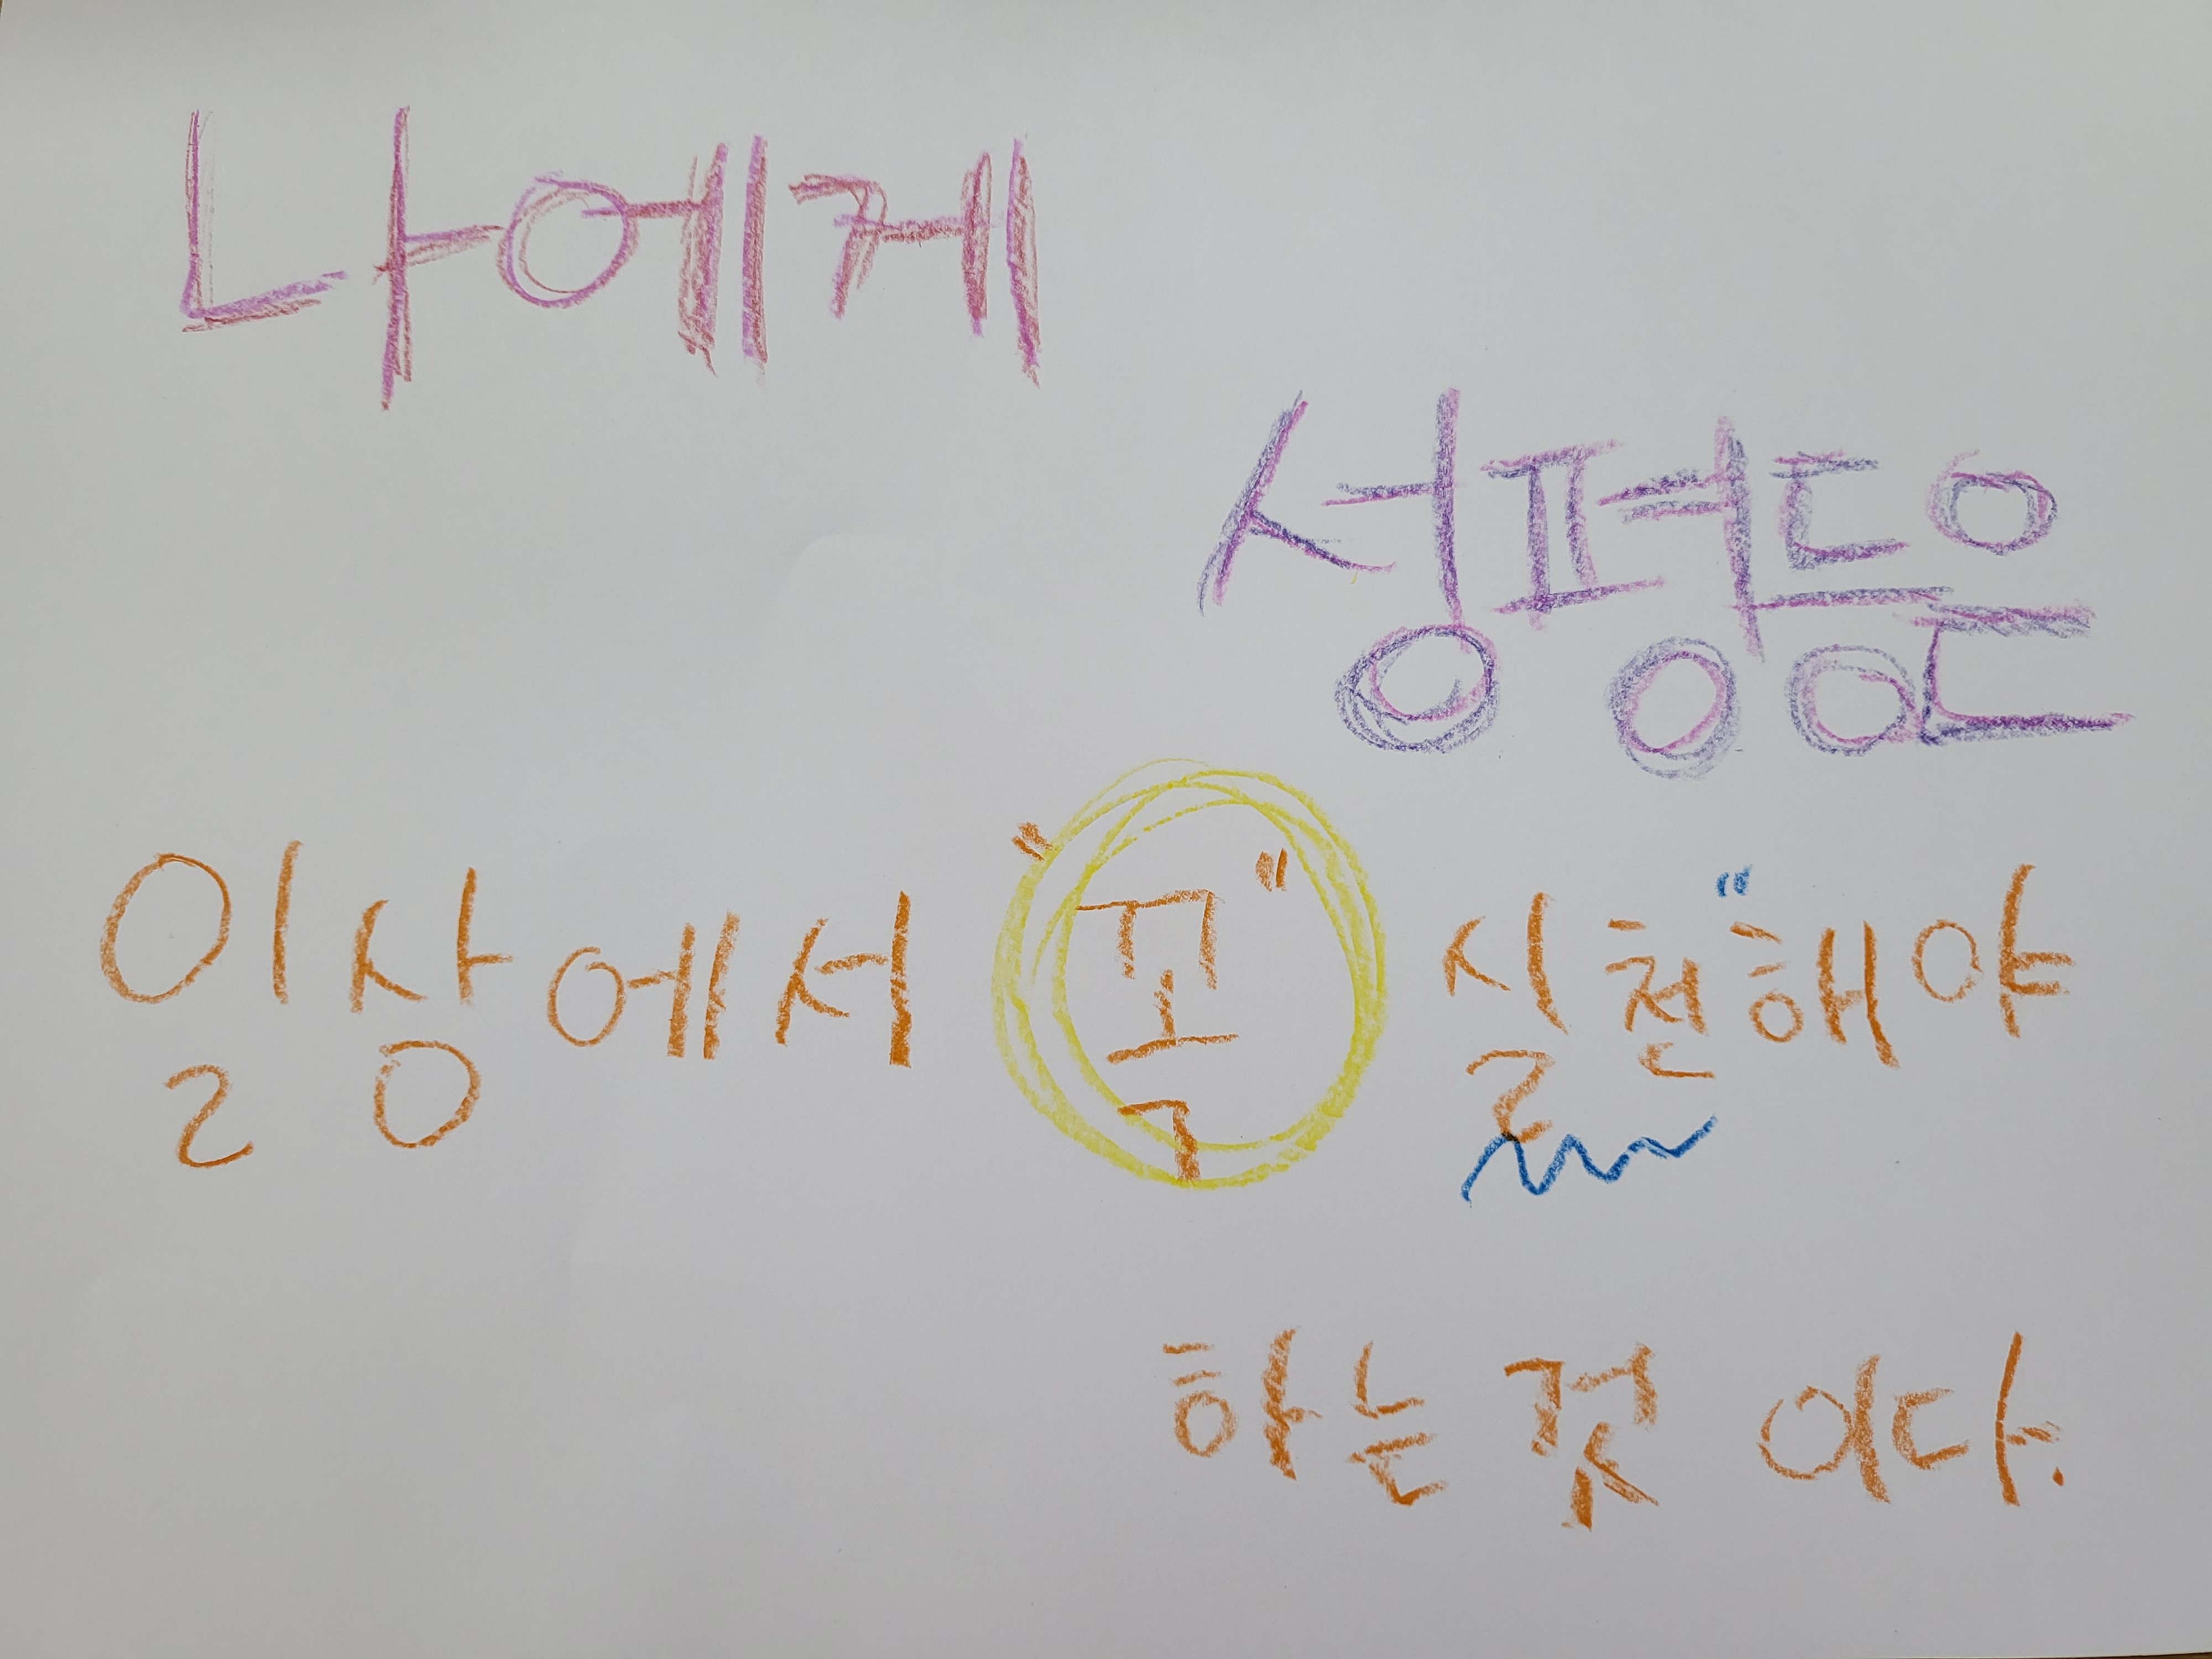 나에게
성평등은
일상에서 "꼭" 실천"해야
하는 것 이다.